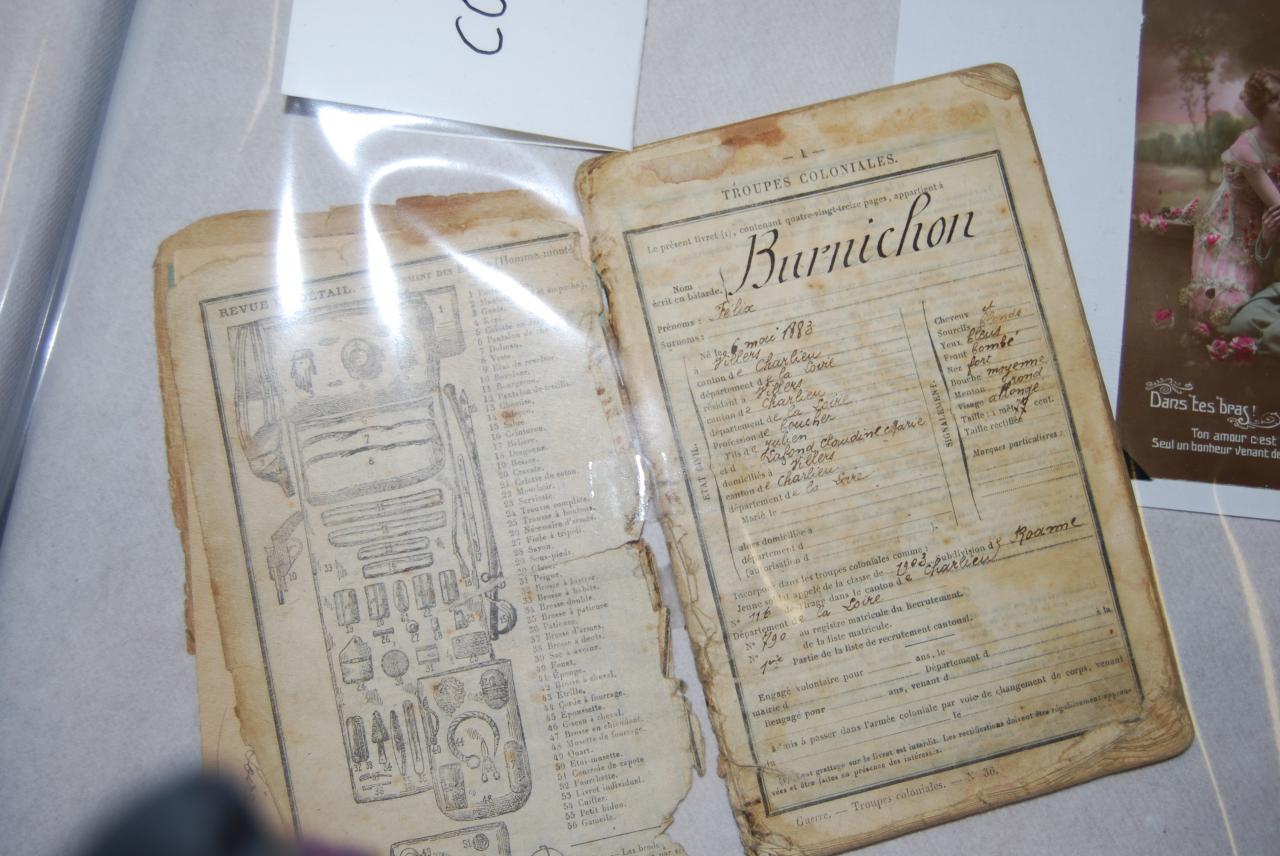 CO
REVUE DÉTAIL.
(Homme monté
7 Dolman.
8 Veste.
15 Sabre.
16 Ceinturon.
17 Bélière.
18 Dragonne.
20 Cravate.
21 Calotte de coton.
22 Mouchoir.
23 Serviette.
24 Trousse complète.
25 Trousse à boutons.
26 Nécessaire d'armes.
27 Fiole à tripoli.
28 Savon.
29 Sous-pieds.
31 Peigne.
32 Brosse à lustrer.
33 Brosse à habits.
34 Brosse double.
35 Brosse à patience
36 Patience.
37 Brosse d'armes.
38 Brosse à dents.
39 Sac à avoine.
40 Fouet.
41 Éponge.
42 Brosse à cheval.
43 Étrille.
44 Corde à fourrage.
45 Époussette.
46 Ciseau à cheval.
47 Brosse en chiendent.
48 Musette de fourrage.
49 Quart.
50 Étui-musette.
51 Courroie de capote
52 Fourchette.
53 Livret individuel.
54 Cuiller.
55 Petit bidon.
56 Gamelle.
— 1 —
TROUPES COLONIALES.
Le présent livret (1), contenant quatre-vingt-treize pages, appartient à
Nom
écrit en bâtarde.
Burnichon
Prénoms : Félix
Surnoms :
ÉTAT CIVIL.
Né le 6 mai 1883
à Villers
canton de Charlieu
département de la Loire
résidant à Villers
canton de Charlieu
département de la Loire
Profession de boucher
Fils de Julien
et d Lafond Claudine Marie
domiciliés à Villers
canton de Charlieu
département de la Loire
Marié le
SIGNALEMENT.
Cheveux et
Sourcils blonds
Yeux bleus
Front bombé
Nez fort
Bouche moyenne
Menton rond
Visage allongé
Taille : 1 mèt. cent.
Taille rectifiée
Marques particulières :
alors domiciliée à
département d
(autorisation d ).
Incorporé dans les troupes coloniales comme :
Jeune soldat appelé de la classe de 1903, Subdivision de Roanne
N° 116 de tirage dans le canton de Charlieu
Département de la Loire
N° 790 au registre matricule du Recrutement.
N° de la liste matricule.
1re Partie de la liste de recrutement cantonal.
Engagé volontaire pour ans, le à la
mairie d Département d
Rengagé pour ans, venant d
Admis à passer dans l'armée coloniale par voie de changement de corps, venant
le
grattage sur le livret est interdit. Les rectifications doivent être régulièrement approu-
vées et être faites en présence des intéressés.
Guerre. — Troupes coloniales. — N° 36.
Dans tes bras!
Ton amour c'est
Seul un bonheur venant de